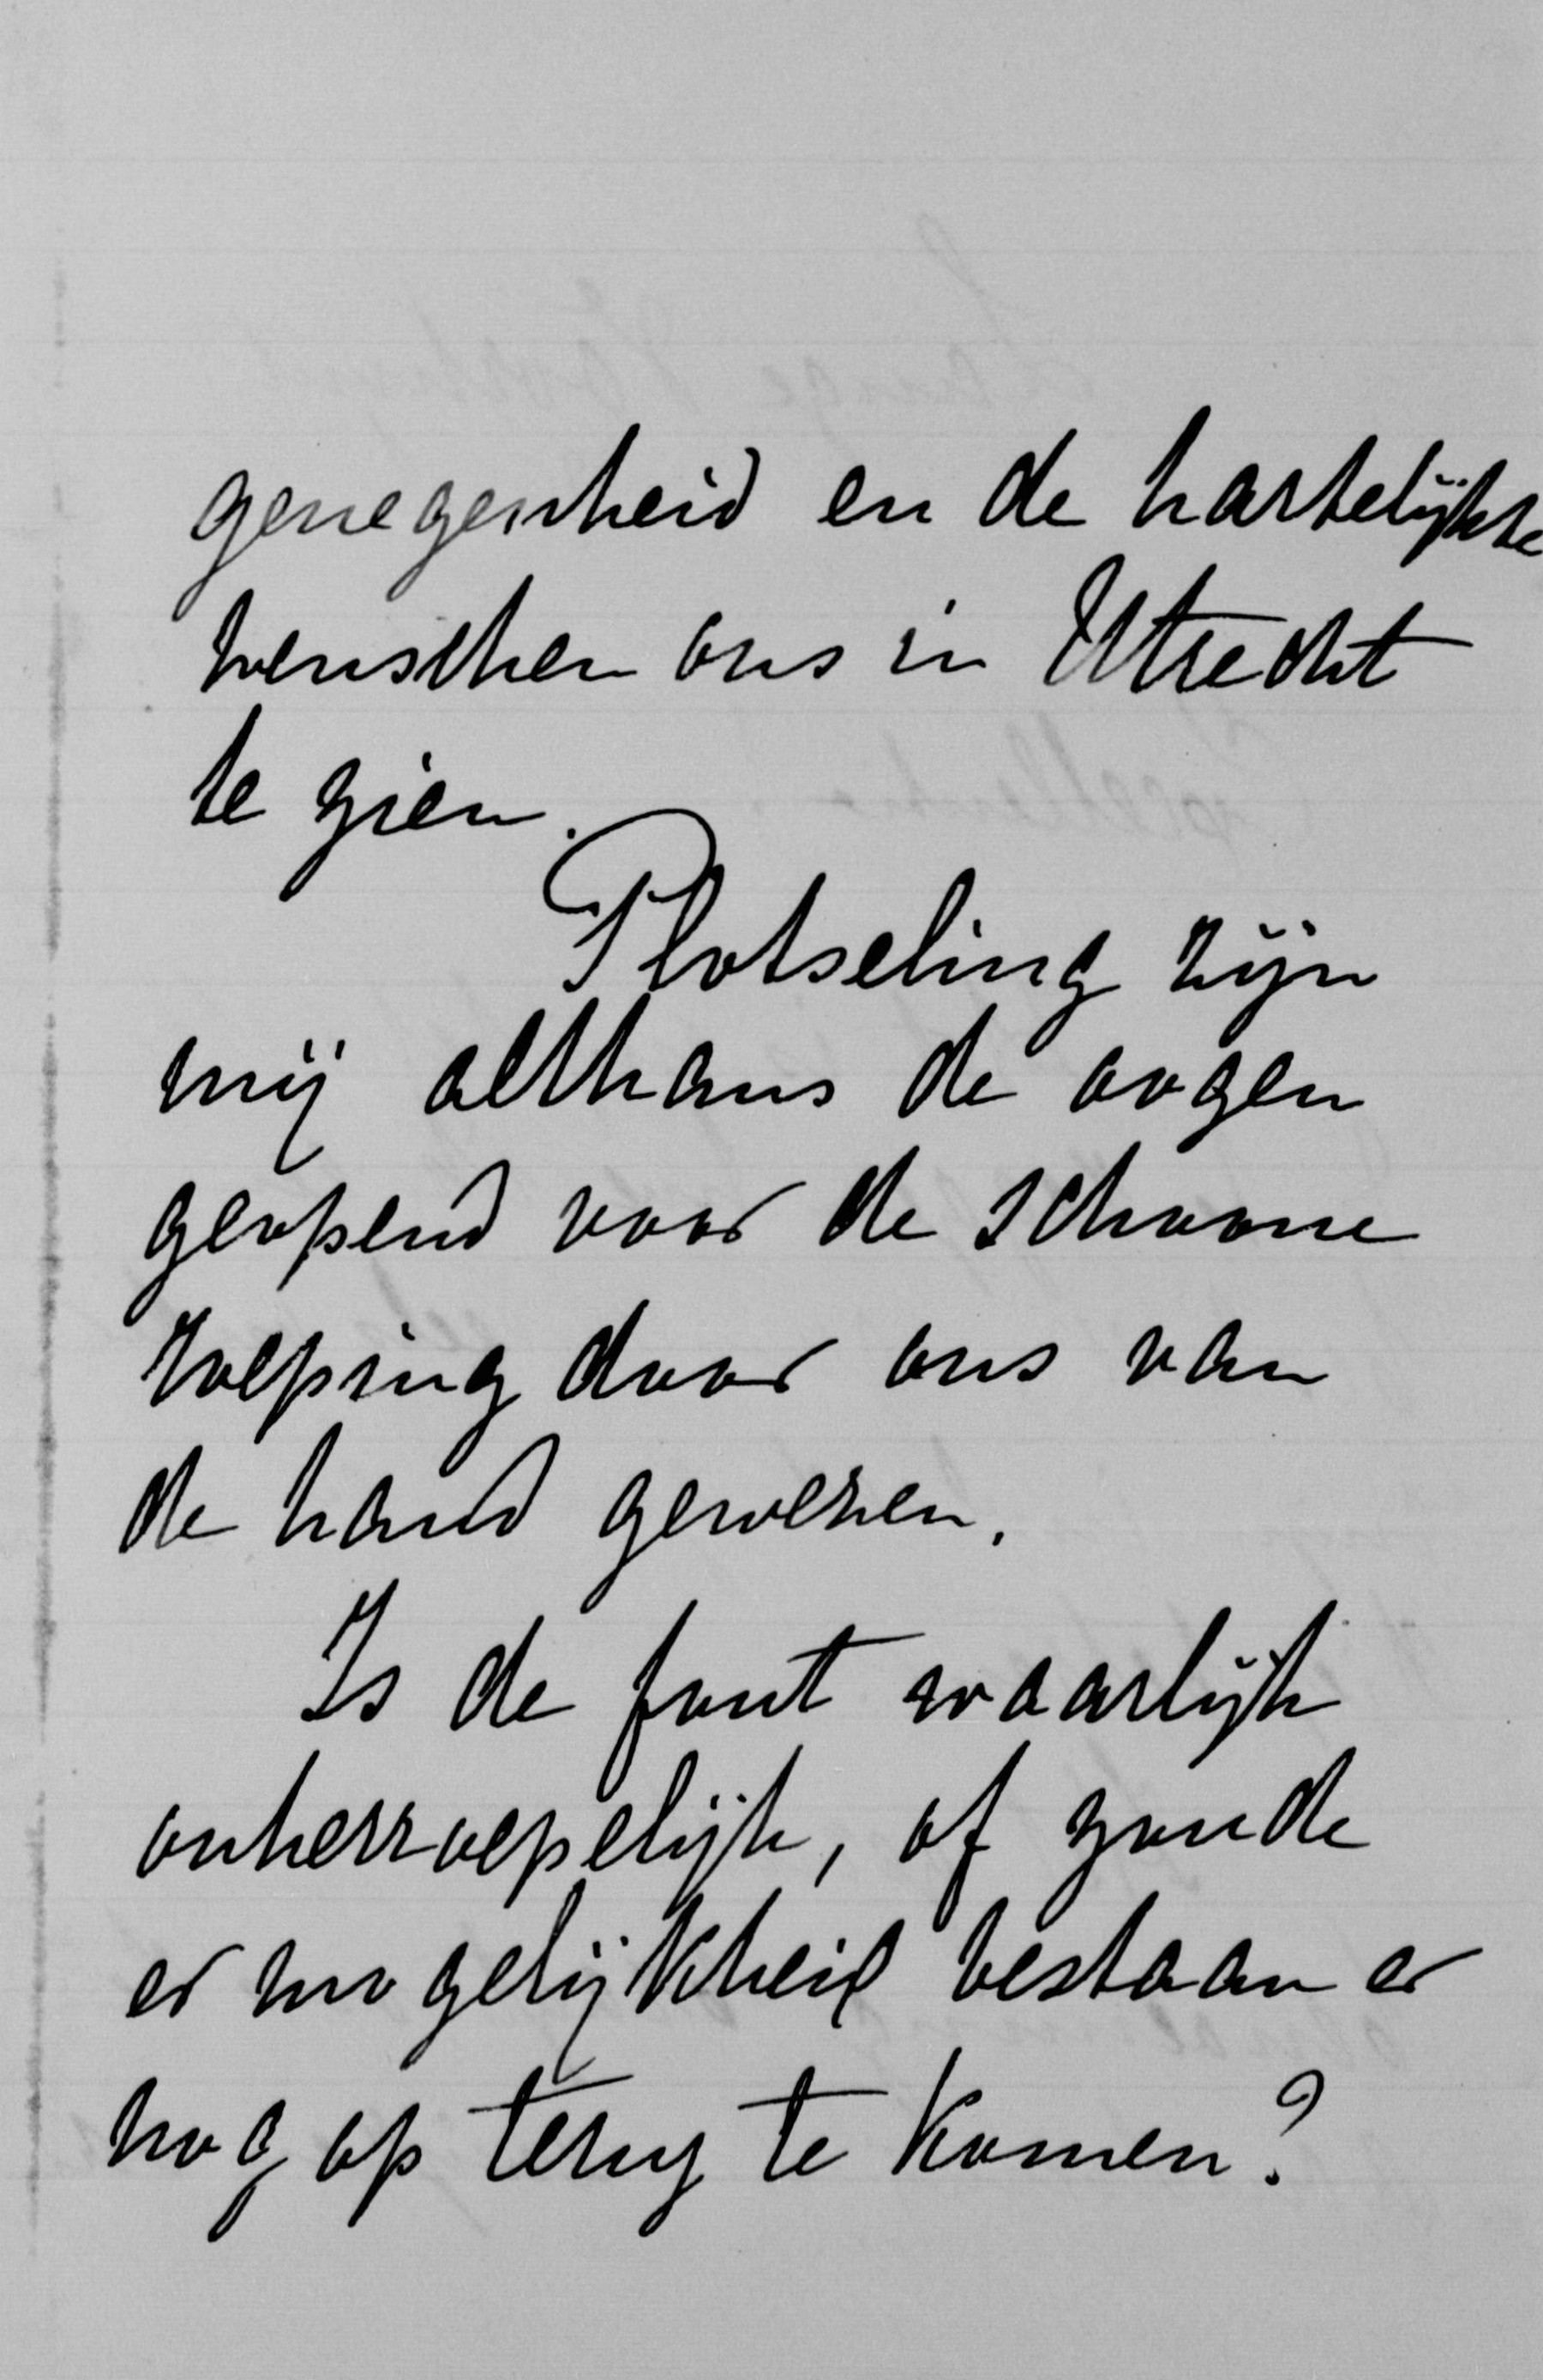 genegenheid en de hartelijkste
wenschen ons in Utrecht
te zien.
Plotseling zijn
mij althans de oogen
geopend voor de schoone
roeping door ons van
de hand gewezen.
Is de fout waarlijk
onherroepelijk, of zoude
er mogelijkheid bestaan er
nog op terug te komen?